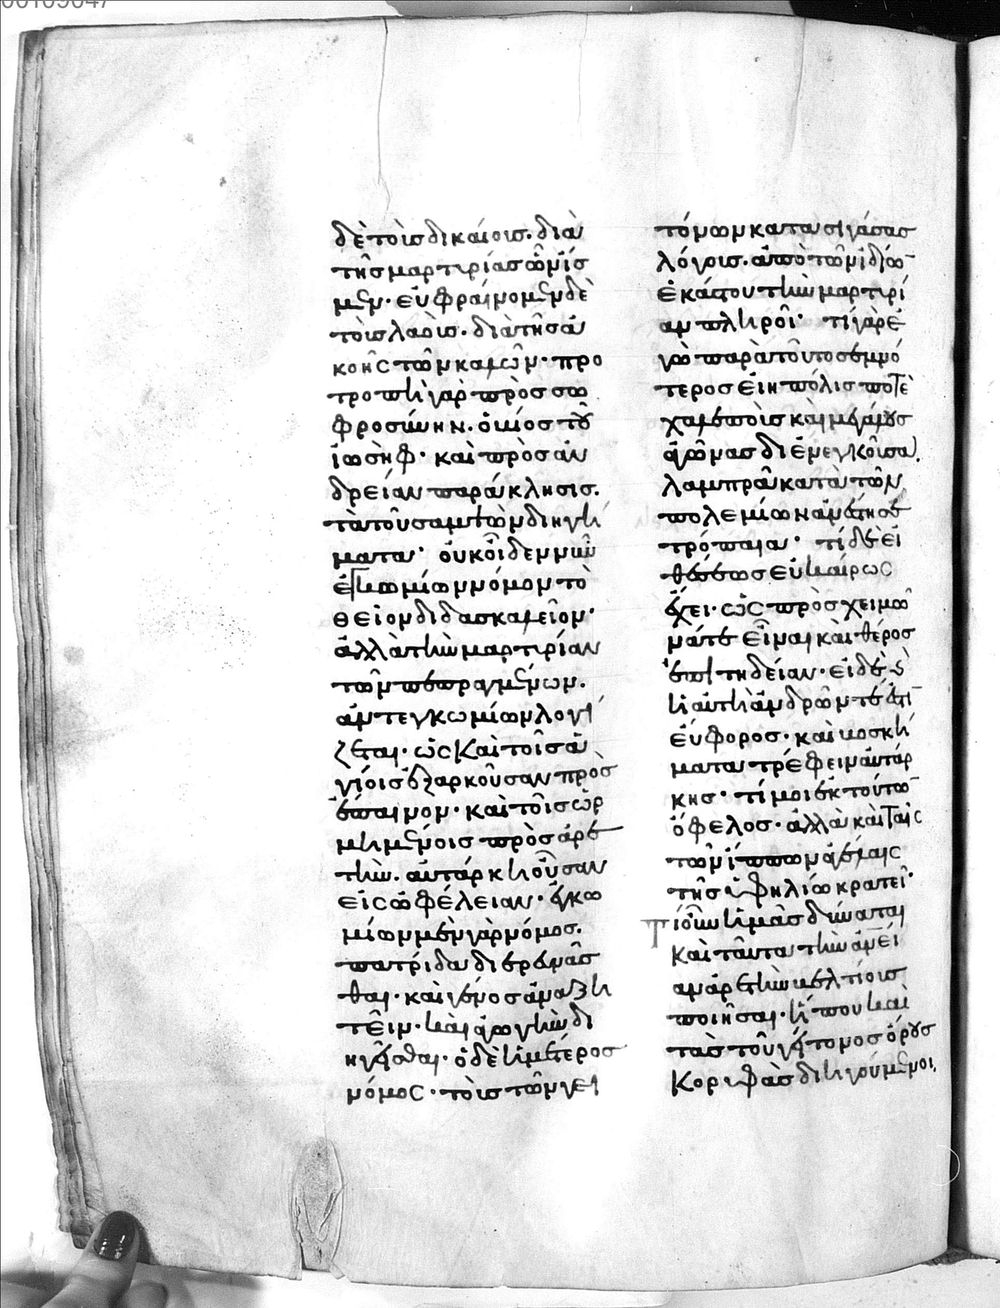 δὲ τοῖς δικαίοις· διὰ
τῆς μαρτυρίας ὠμίσ
μεν· εὐφραίνομεν δὲ
τοὺς λαοὺς· διὰ τῆς ἀ
κοῆς τῶν καλῶν· προ
τροπὴ γὰρ πρὸς σω
φροσύνην. ὁ υἱὸς τοῦ
ἰωσὴφ· καὶ πρὸς ἀν
δρείαν παράκλησις.
τὰ τοῦ σαμψὼν διηγή
ματα· οὐκ οἶδεν μὲν
ἐγκωμίων νόμον τὸ
θεῖον διδασκαλεῖον·
ἀλλὰ τὴν μαρτυρίαν
τῶν πεπραγμένων.
ἀντ' ἐγκωμίων λογί
ζεται· ὡς καὶ τοῖς ἁ
γίοις ἐξαρκοῦσαν πρὸς
ἔπαινον· καὶ τοῖς ὡρ
μημένοις πρὸς ἀρε
τὴν. αὐτάρκη οὖσαν
εἰς ὠφέλειαν· ἐγκω
μίων μὲν γὰρ νόμος.
πατρίδα διερευνᾶσ
θαι· καὶ γένος ἀναζη
τεῖν· καὶ ἀγωγὴν δι
ηγεῖσθαι· ὁ δὲ ἡμέτερος
νόμος· τοὺς τῶν γει
τόνων κατασιγάσας
λόγους· ἀπὸ τῶν ἰδίων
ἑκάστου τὴν μαρτυρί
αν πληροῖ· τί γὰρ ἐ
γὼ παρὰ τοῦτο σεμνό
τερος εἴην πόλις ποτὲ
χαλεποὺς καὶ μεγάλους
ἀγῶνας διενεγκοῦσα.
λαμπρὰ κατὰ τῶν
πολεμίων ἀνέστησε
τρόπαια· τί δὲ εἰ
θέσεως εὐκαίρως
ἔχει· ὡς πρὸς χειμῶ
νά τε εἶναι καὶ θέρος
ἐπιτηδείαν· εἰ δὲ
ἡ αὐτὴ ἀνδρῶν τέ ἐστι
εὔφορος· καὶ βοσκή
ματα τρέφειν αὐτάρ
κης· τί μοι ἐκ τούτων
ὄφελος· ἀλλὰ καὶ ταῖς
τῶν ἵππων ἀγέλαις
τῆς ὑφηλίω κρατεῖ·
Τί οὖν ἡμᾶς δύναται
καὶ ταῦτα τὴν ἀν
αν ἀρετὴν βελτίους
ποιῆσαι· ἤ που καὶ
τὰς τοῦ γείτονος ὄρους
κορυφὰς διηγούμενοι.